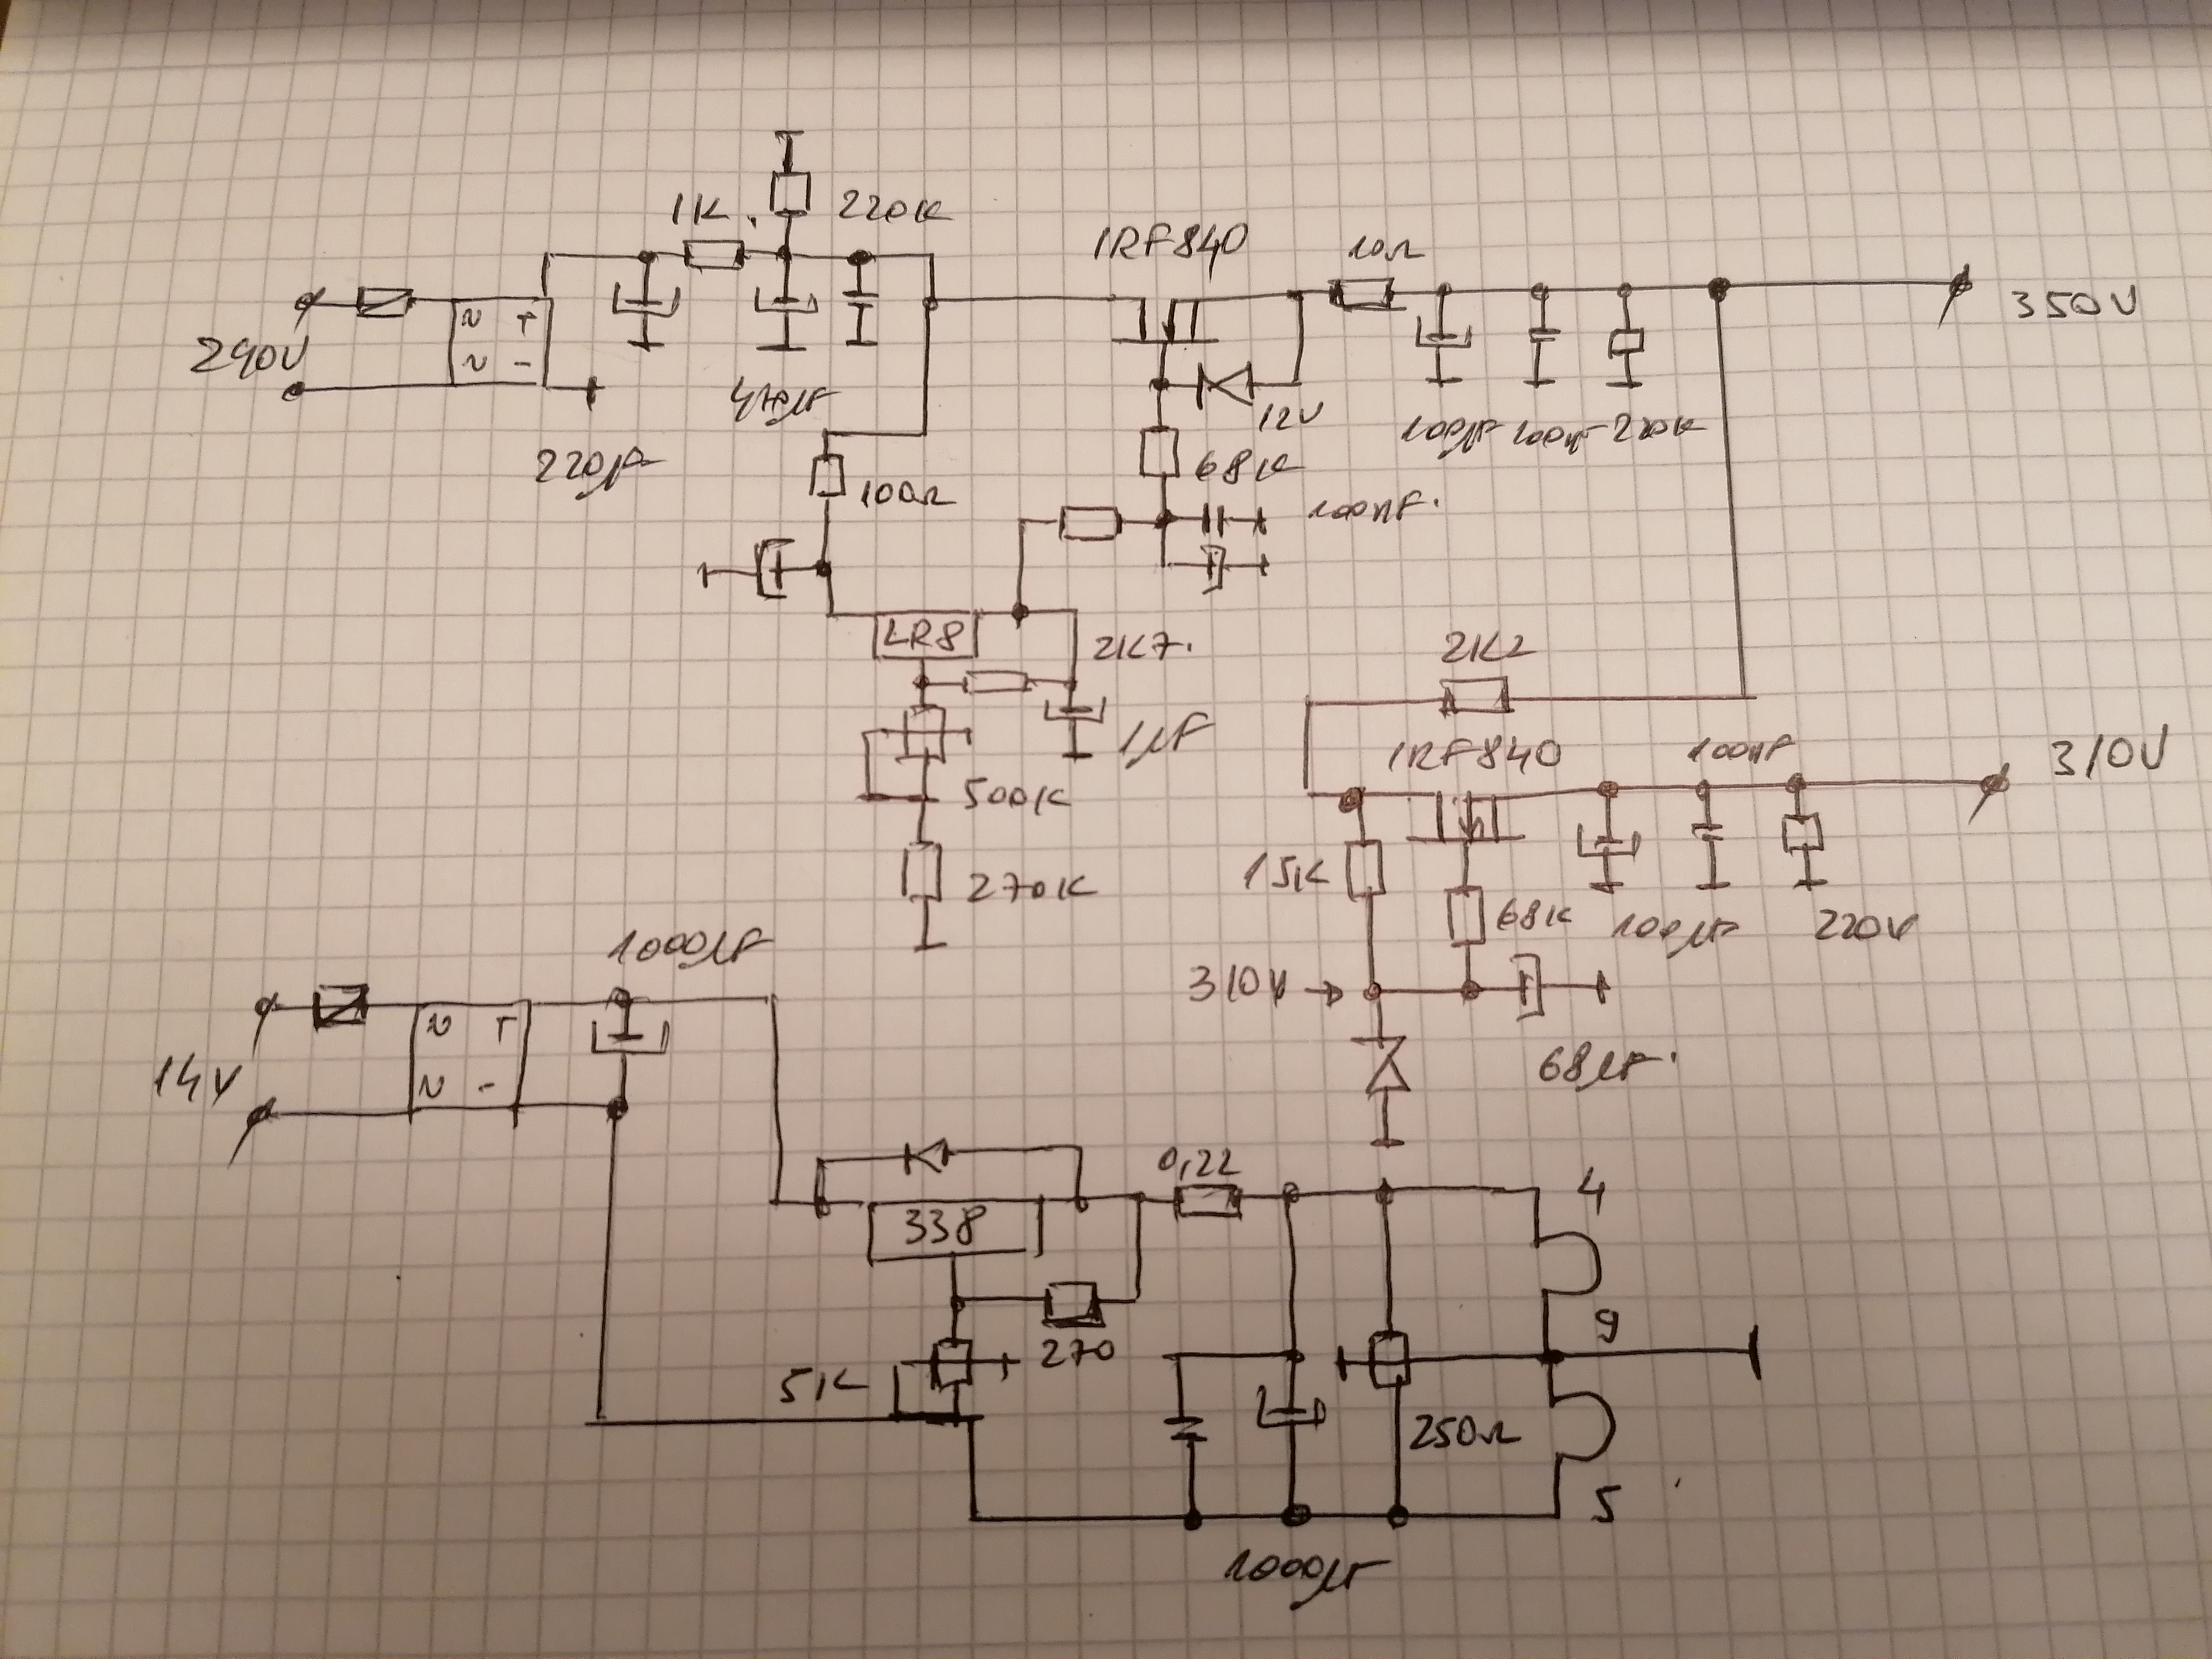 1K.
220K
IRF840
10Ω
350V
290V
N + N -
47µF
12V
100µF 100nF 220K
220µF
68K
100Ω
100nF.
LR8
2K7.
2K2
1µF
IRF840
100nF
310V
500K
15K
270K
68K
100µF
220K
1000µF
310V →
14V
N + N -
68µF.
0,22
4
338
9
270
5K
250Ω
5
1000µF